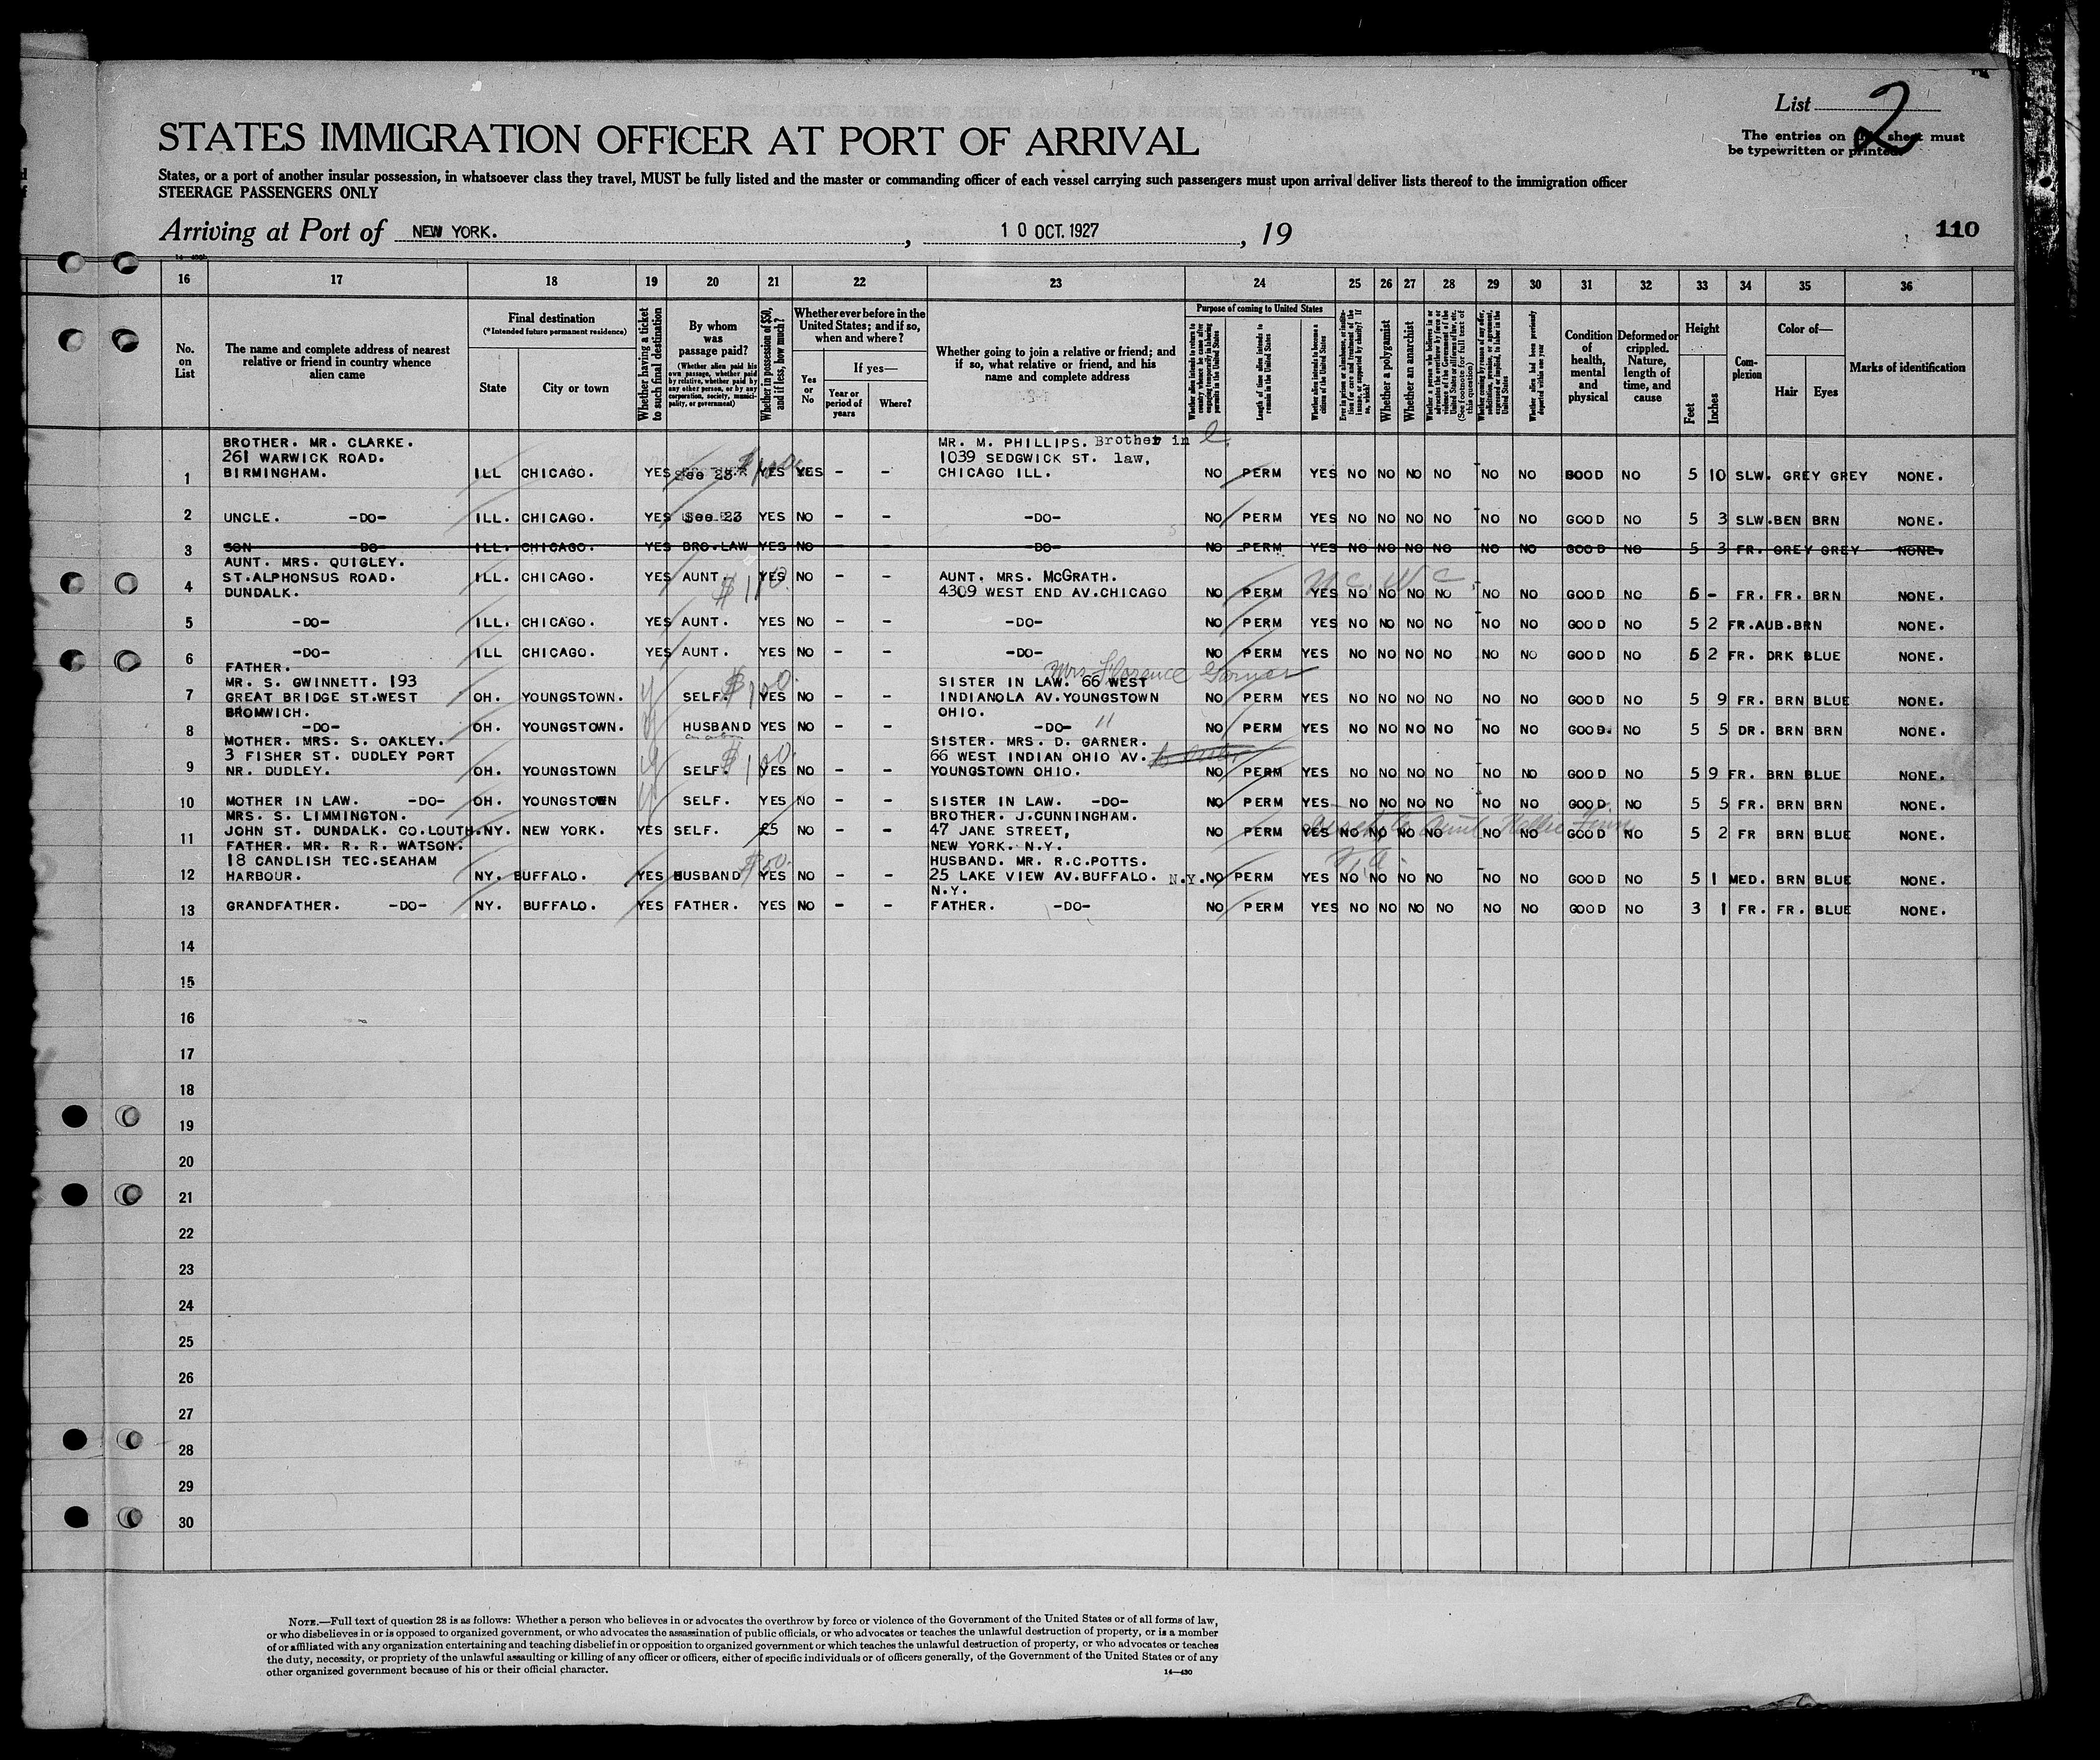 List 2
STATES IMMIGRATION OFFICER AT PORT OF ARRIVAL
The entries on sheet must
be typewritten or printed.
States, or a port of another insular possession, in whatsoever class they travel, MUST be fully listed and the master or commanding officer of each vessel carrying such passengers must upon arrival deliver lists thereof to the immigration officer
STEERAGE PASSENGERS ONLY
Arriving at Port of NEW YORK. , 10 OCT. 1927 , 19
110
16 17 18 19 20 21 22 23 24 25 26 27 28 29 30 31 32 33 34 35 36
No. on List
The name and complete address of nearest relative or friend in country whence alien came
Final destination
(*Intended future permanent residence)
State
City or town
Whether having a ticket to such final destination
By whom was passage paid?
(Whether alien paid his own passage, whether paid by relative, whether paid by any other person, or by any corporation, society, municipality, or government)
Whether in possession of $50, and if less, how much?
Whether ever before in the United States; and if so, when and where?
Yes or No
If yes—
Year or period of years
Where?
Whether going to join a relative or friend; and if so, what relative or friend, and his name and complete address
Purpose of coming to United States
Length of time alien intends to remain in the United States
Whether alien intends to become a citizen of the United States
Whether a polygamist
Whether an anarchist
Condition of health, mental and physical
Deformed or crippled. Nature, length of time, and cause
Height
Feet
Inches
Complexion
Color of—
Hair
Eyes
Marks of identification
BROTHER. MR. CLARKE. MR. M. PHILLIPS. Brother in
261 WARWICK ROAD. 1039 SEDGWICK ST. law,
1 BIRMINGHAM. ILL CHICAGO. YES See 23 $100 YES YES - - CHICAGO ILL. NO PERM YES NO NO NO NO NO NO GOOD NO 5 10 SLW. GREY GREY NONE.
2 UNCLE. -DO- ILL. CHICAGO. YES See 23 YES NO - - -DO- NO PERM YES NO NO NO NO NO NO GOOD NO 5 3 SLW. BEN BRN NONE.
3 SON -DO- ILL. CHICAGO. YES BRO.LAW YES NO - - -DO- NO PERM YES NO NO NO NO NO NO GOOD NO 5 3 FR. GREY GREY NONE.
AUNT. MRS. QUIGLEY.
ST.ALPHONSUS ROAD. ILL. CHICAGO. YES AUNT. YES NO - - AUNT. MRS. McGRATH.
4 DUNDALK. $110. 4309 WEST END AV.CHICAGO NO PERM YES NO NO NO NO NO NO GOOD NO 5 - FR. FR. BRN NONE.
5 -DO- ILL. CHICAGO. YES AUNT. YES NO - - -DO- NO PERM YES NO NO NO NO NO NO GOOD NO 5 2 FR. AUB. BRN NONE.
6 -DO- ILL CHICAGO. YES AUNT. YES NO - - -DO- NO PERM YES NO NO NO NO NO NO GOOD NO 5 2 FR. DRK BLUE NONE.
FATHER. Mrs Florence Garner
MR. S. GWINNETT. 193 SISTER IN LAW. 66 WEST
7 GREAT BRIDGE ST.WEST OH. YOUNGSTOWN. y SELF. $100. YES NO - - INDIANOLA AV.YOUNGSTOWN NO PERM YES NO NO NO NO NO NO GOOD NO 5 9 FR. BRN BLUE NONE.
BROMWICH. OHIO.
8 -DO- OH. YOUNGSTOWN. y HUSBAND YES NO - - -DO- " NO PERM YES NO NO NO NO NO NO GOOD. NO 5 5 DR. BRN BRN NONE.
MOTHER. MRS. S. OAKLEY. SISTER. MRS. D. GARNER.
3 FISHER ST. DUDLEY PORT 66 WEST INDIAN OHIO AV.
9 NR. DUDLEY. OH. YOUNGSTOWN y SELF. $100. YES NO - - YOUNGSTOWN OHIO. NO PERM YES NO NO NO NO NO NO GOOD NO 5 9 FR. BRN BLUE NONE.
10 MOTHER IN LAW. -DO- OH. YOUNGSTOWN y SELF. YES NO - - SISTER IN LAW. -DO- NO PERM YES NO NO NO NO NO NO GOOD NO 5 5 FR. BRN BRN NONE.
MRS. S. LIMMINGTON. BROTHER. J.CUNNINGHAM.
11 JOHN ST. DUNDALK. CO.LOUTH. NY. NEW YORK. YES SELF. £5 NO - - 47 JANE STREET, NO PERM YES NO NO NO NO NO NO GOOD NO 5 2 FR BRN BLUE NONE.
NEW YORK. N.Y.
FATHER. MR. R. R. WATSON.
18 CANDLISH TEC.SEAHAM HUSBAND. MR. R.C.POTTS.
12 HARBOUR. NY. BUFFALO. YES HUSBAND YES NO - - 25 LAKE VIEW AV.BUFFALO. N.Y. NO PERM YES NO NO NO NO NO NO GOOD NO 5 1 MED. BRN BLUE NONE.
N.Y.
13 GRANDFATHER. -DO- NY. BUFFALO. YES FATHER. YES NO - - FATHER. -DO- NO PERM YES NO NO NO NO NO NO GOOD NO 3 1 FR. FR. BLUE NONE.
14
15
16
17
18
19
20
21
22
23
24
25
26
27
28
29
30
NOTE.—Full text of question 28 is as follows: Whether a person who believes in or advocates the overthrow by force or violence of the Government of the United States or of all forms of law,
or who disbelieves in or is opposed to organized government, or who advocates the assassination of public officials, or who advocates or teaches the unlawful destruction of property, or is a member
of or affiliated with any organization entertaining and teaching disbelief in or opposition to organized government or which teaches the unlawful destruction of property, or who advocates or teaches
the duty, necessity, or propriety of the unlawful assaulting or killing of any officer or officers, either of specific individuals or of officers generally, of the Government of the United States or of any
other organized government because of his or their official character.
14—430